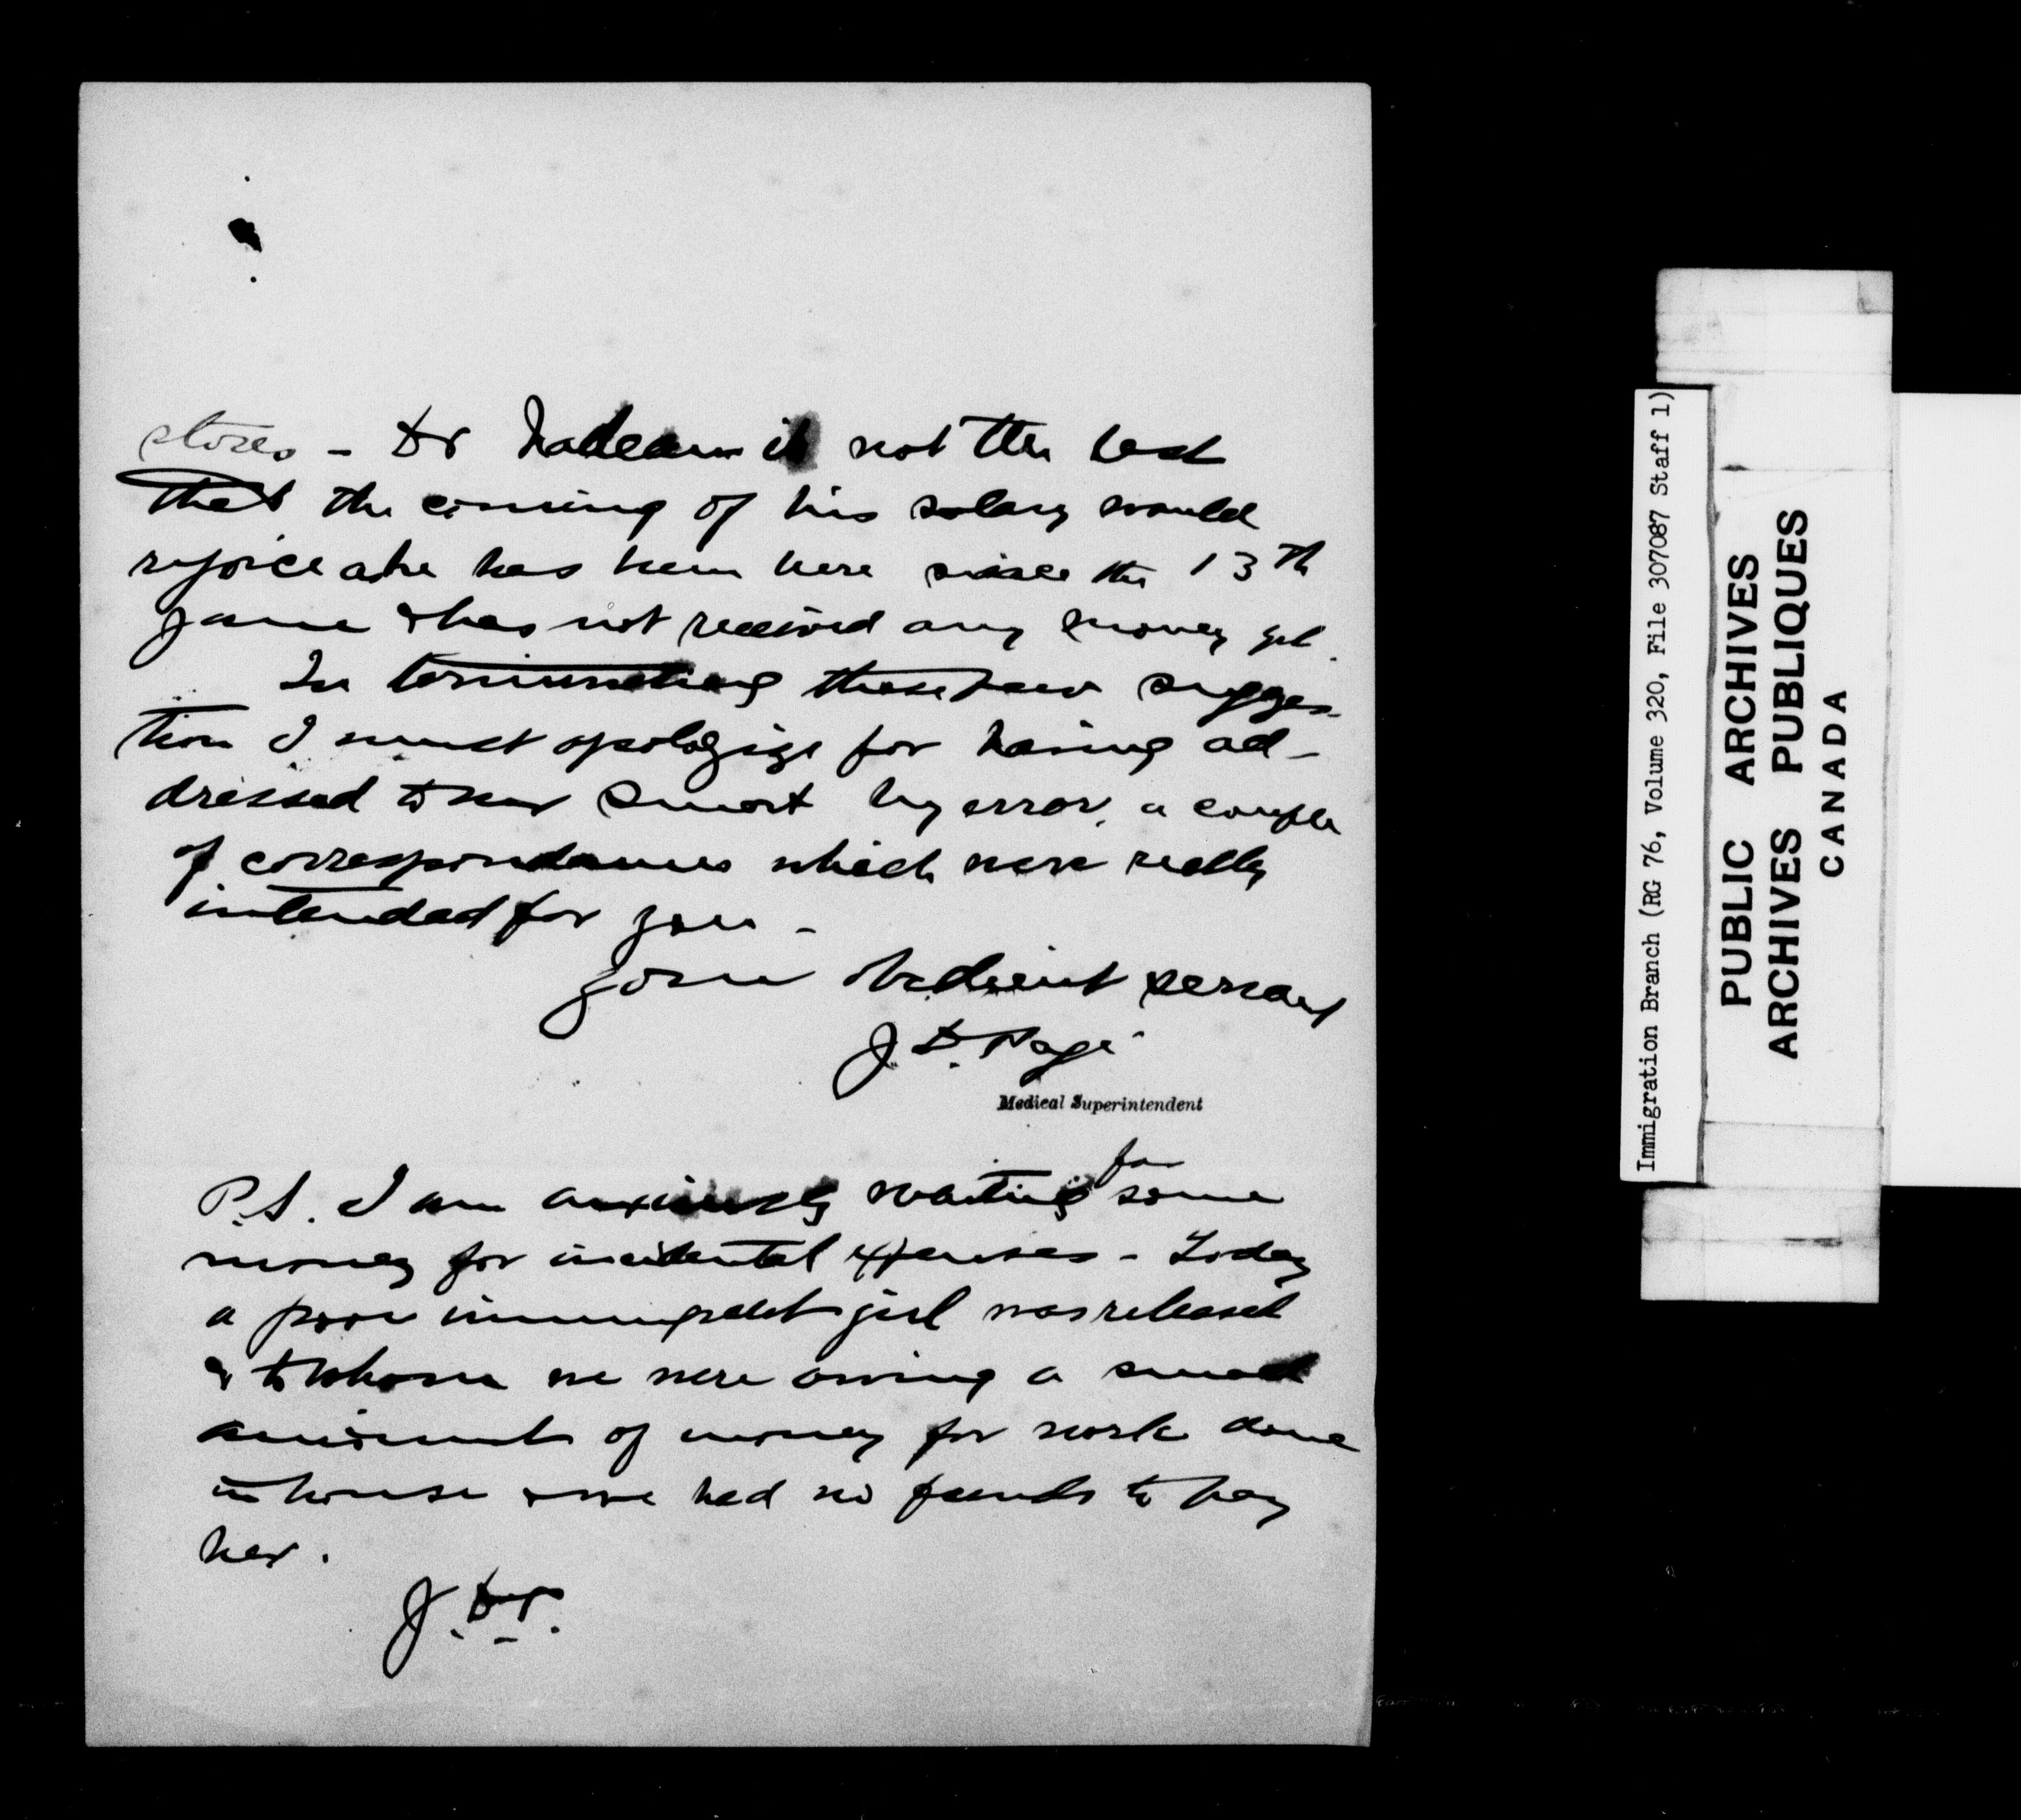 stores - Dr Nadeau is not the last
that the coming of his salary would
rejoice as he has been here since the 13th
June & has not received any money yet.
In terminating these few sugges-
tion I must apologize for having ad-
dressed to Mr Smart by error, a couple
of correspondances which were really
intended for you -
Your obedient servant
J. D. Pagé
Medical Superintendent
P.S. I am anxiously waiting for some
money for incidental expenses - Today
a poor immigrant girl was released
& to whom we were owing a small
amount of money for work done
in house & we had no funds to pay
her.
J. D. P.
Immigration Branch (RG 76, Volume 320, File 307087 Staff 1)
PUBLIC ARCHIVES
ARCHIVES PUBLIQUES
CANADA